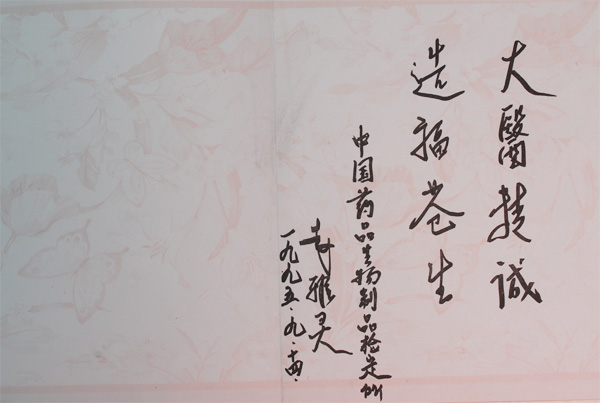 大醫精誠
造福苍生
中国药品生物制品检定所
雅灵
一九九五.九.十四.